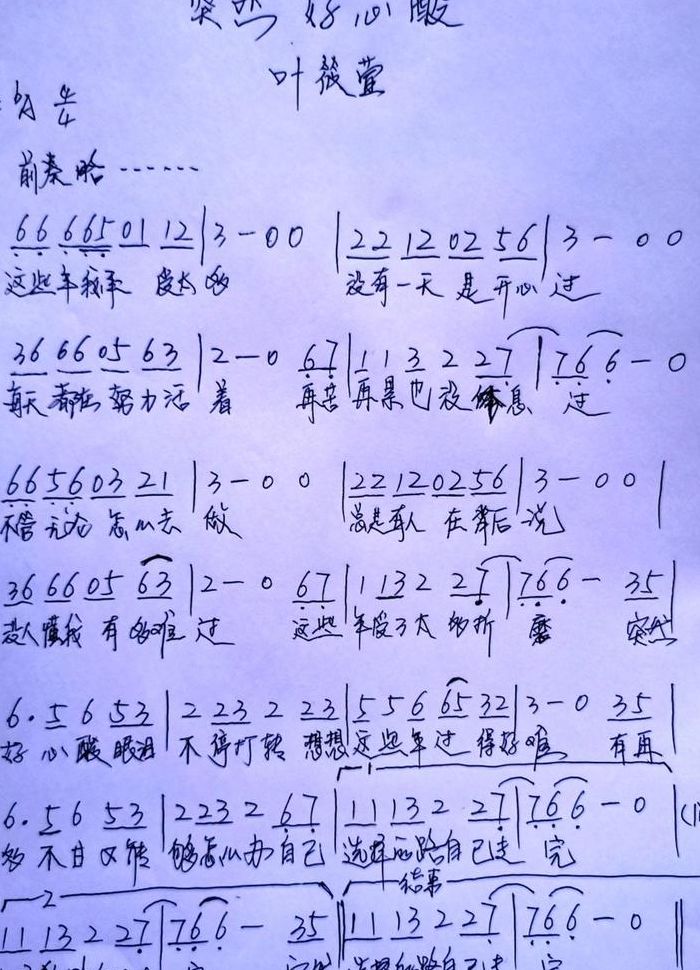 突然好心酸
叶筱萱
bA 4/4
前奏略……
66 665 01 12 | 3 - 0 0 | 22 12 02 56 | 3 - 0 0
这些年我承受太多 没有一天是开心过
36 66 05 63 | 2 - 0 67 | 1 1 3 2 27 | 76 6 - 0
每天都在努力活着 再苦再累也没休息过
66 56 03 21 | 3 - 0 0 | 22 12 02 56 | 3 - 0 0 |
不管无论怎么去做 总是有人在背后说
36 66 05 63 | 2 - 0 67 | 1 13 2 27 | 76 6 - 35 |
没人懂我有多难过 这些年受了太多折磨 突然
6. 5 6 53 | 2 23 2 23 | 5 5 6 65 32 | 3 - 0 35 |
好心酸眼泪不停打转 想想这些年过得好难 有再
1
6. 5 6 53 | 2 23 2 67 | 11 13 2 27 | 76 6 - 0 |
多不甘又能够怎么办 自己选择的路自己走完
2 结束
11 13 2 27 | 76 6 - 35 || 11 13 2 27 | 76 6 - 0 ||